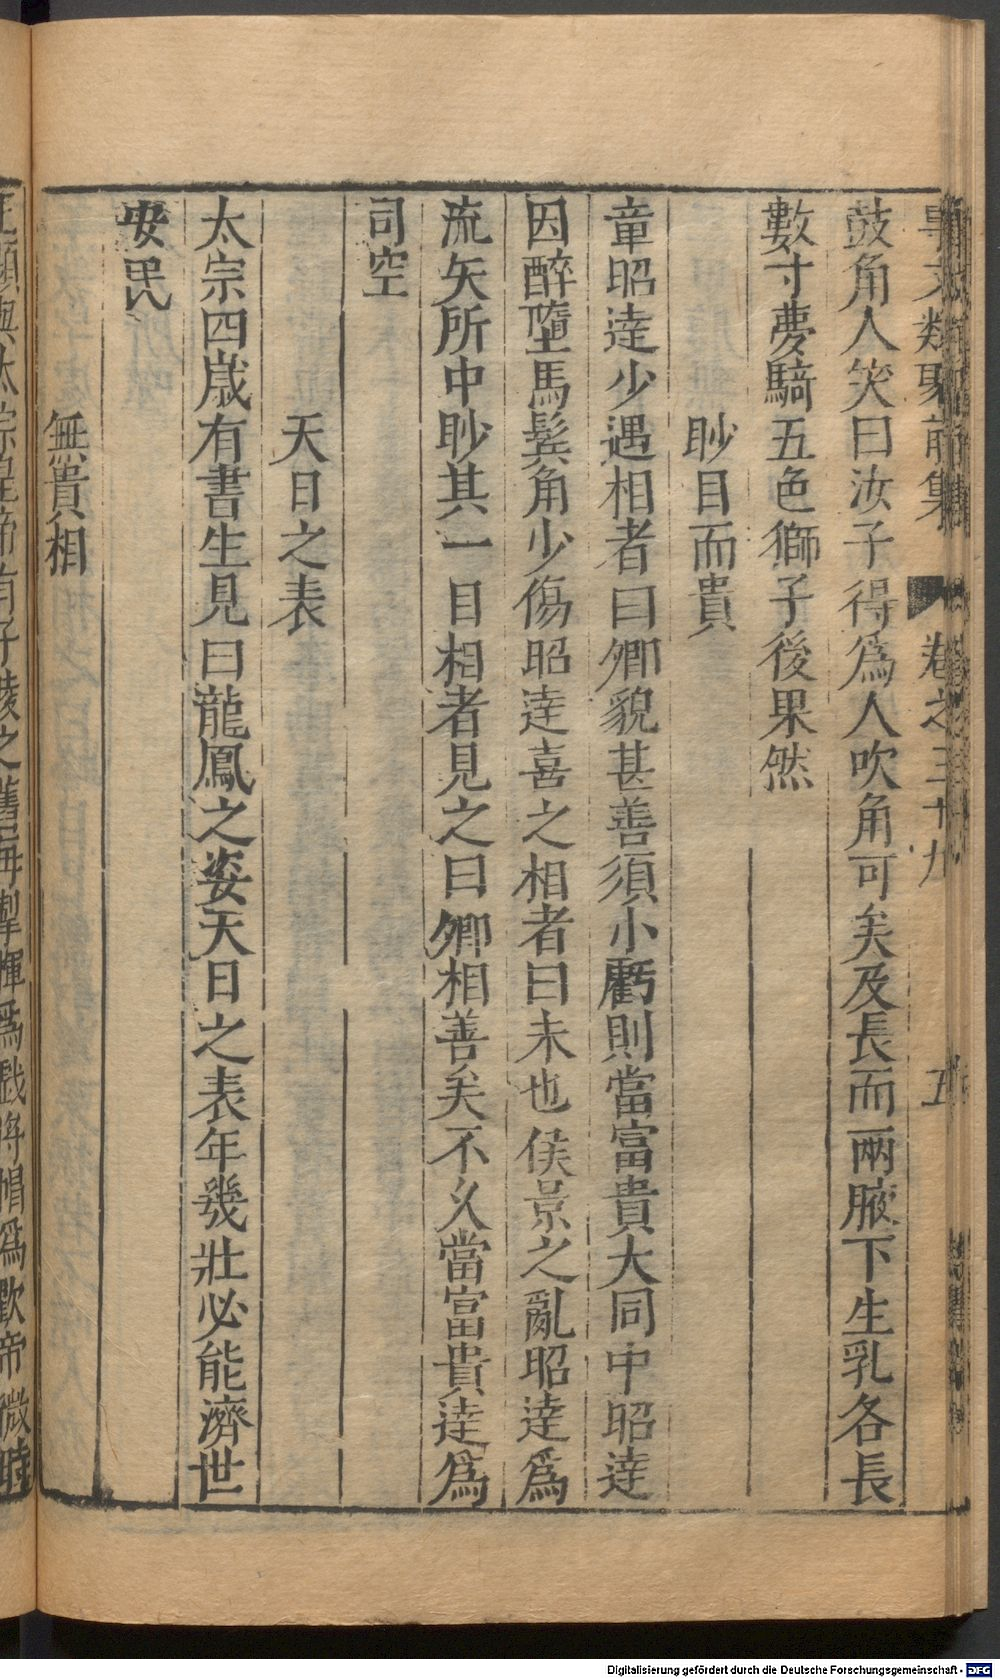 事文類聚前集 卷之三十九 五
鼓角人笑曰汝子得爲人吹角可矣及長而兩腋下生乳各長
數寸夢騎五色獅子後果然
眇目而貴
章昭達少遇相者曰卿貌甚善須小虧則當富貴大同中昭達
因醉墮馬鬂角少傷昭達喜之相者曰未也侯景之亂昭達爲
流矢所中眇其一目相者見之曰卿相善矣不久當富貴達爲
司空
天日之表
太宗四歲有書生見曰龍鳳之姿天日之表年幾壯必能濟世
安民
無貴相
Digitalisierung gefördert durch die Deutsche Forschungsgemeinschaft - DFG